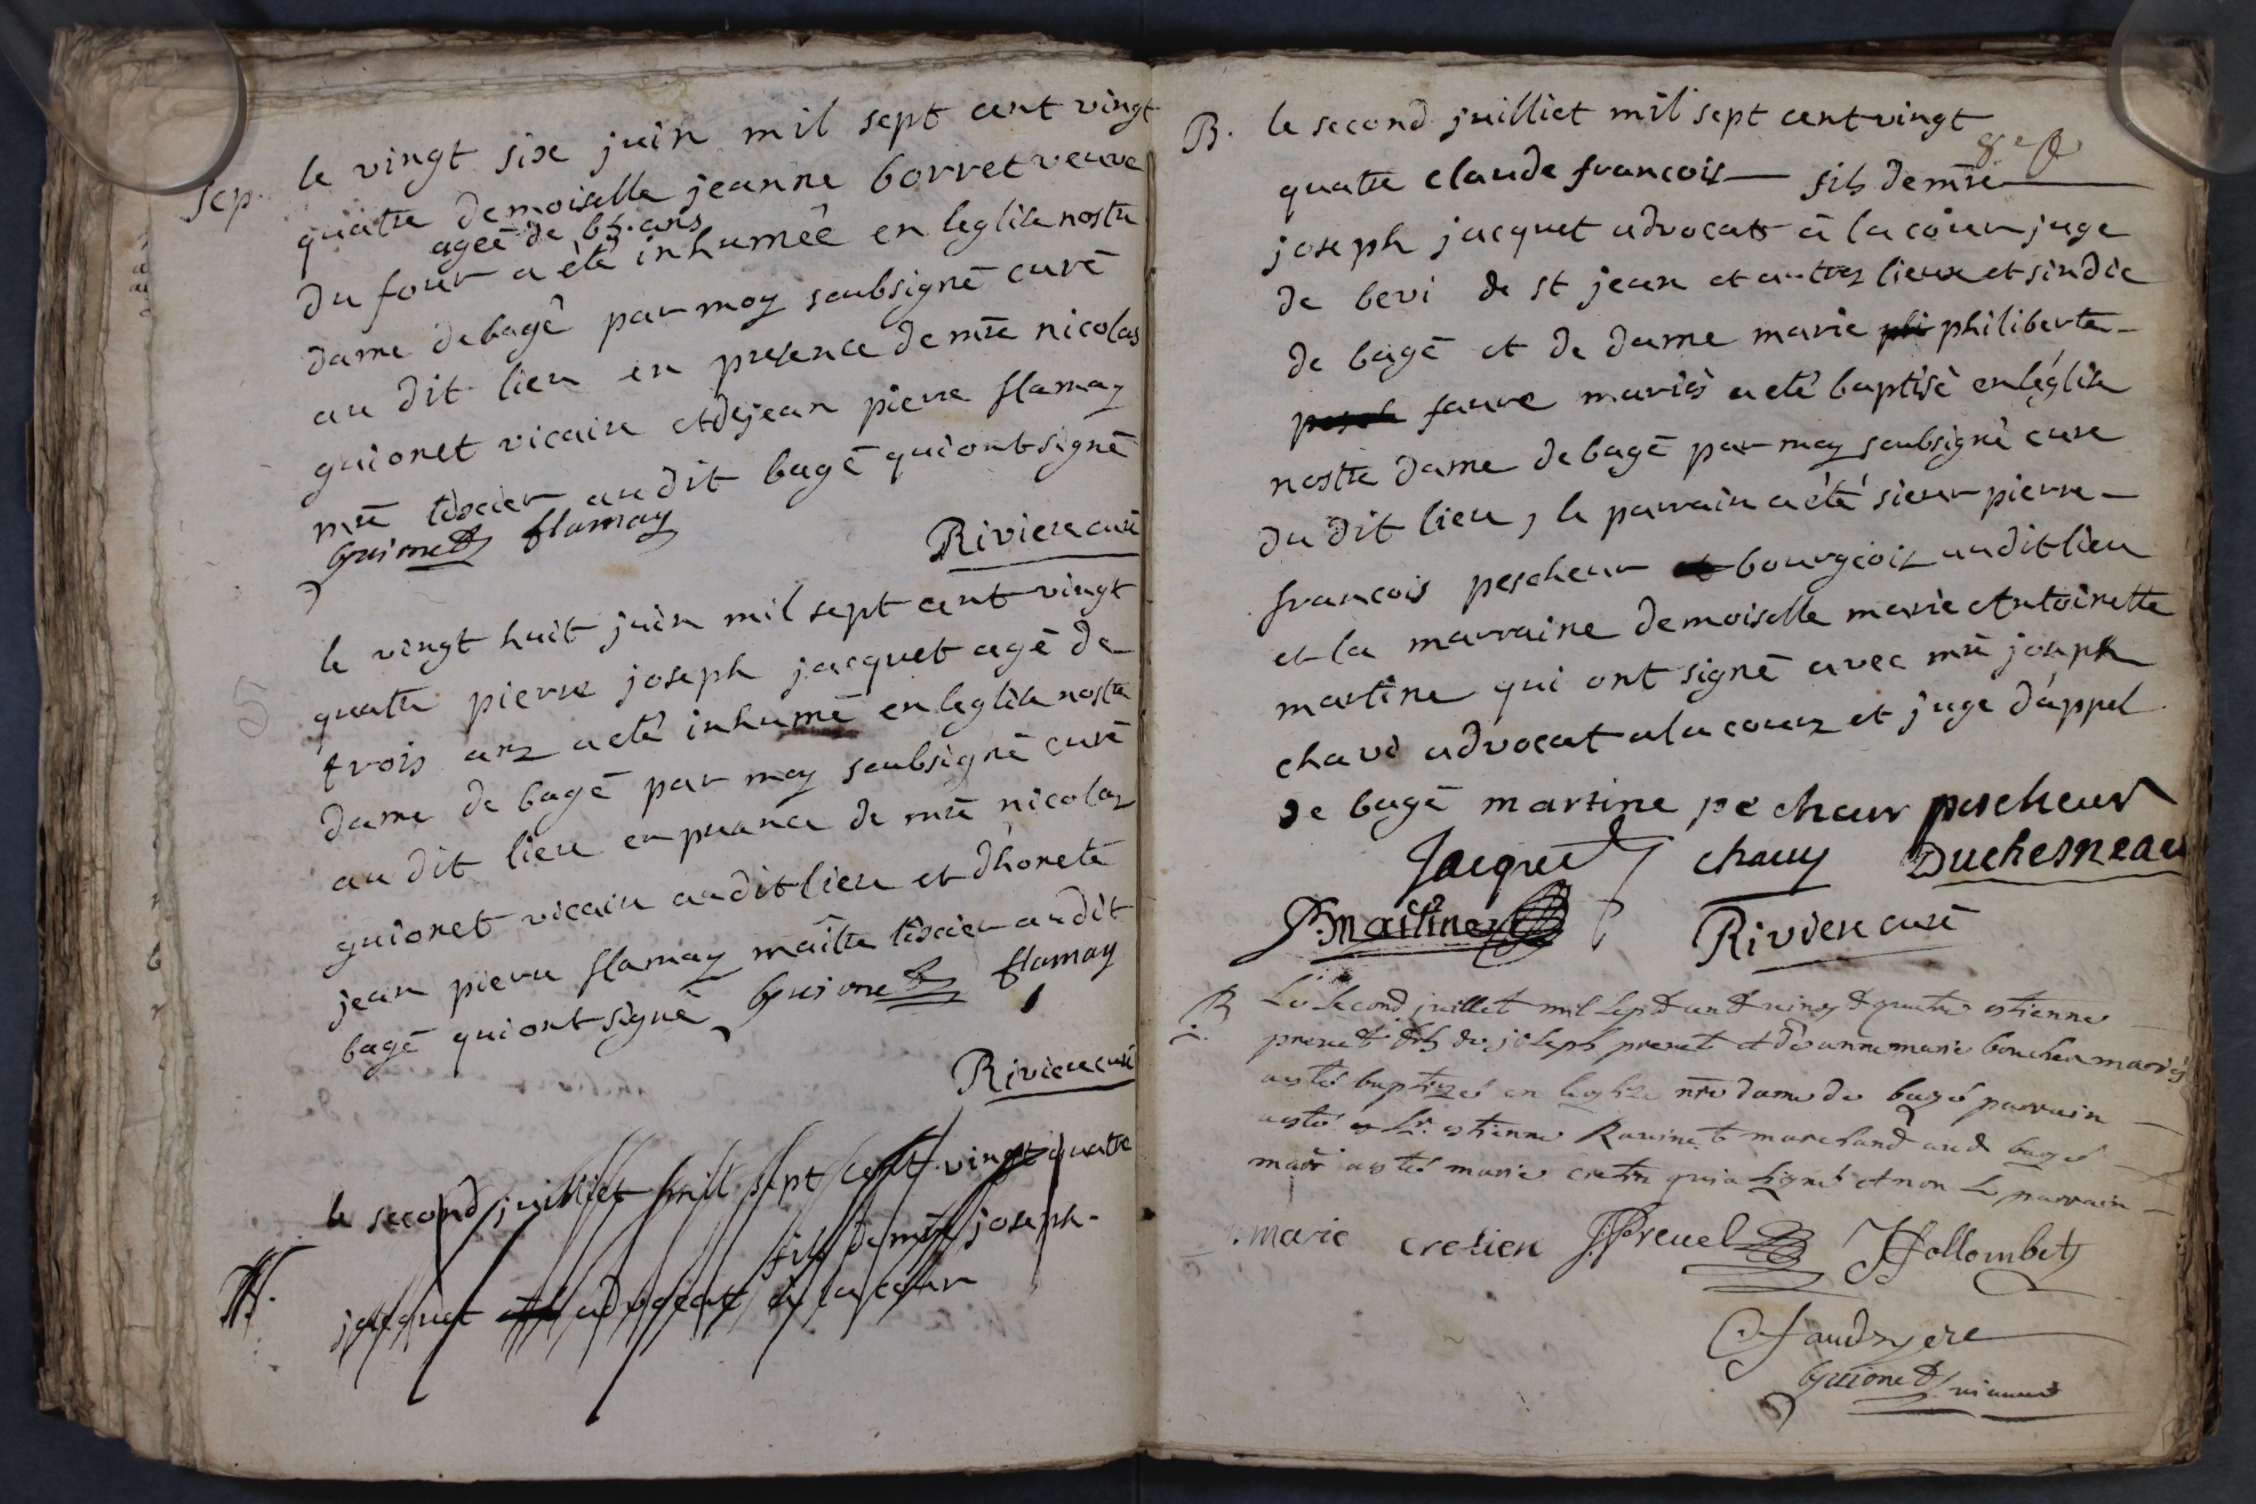 Sep.
le vingt six juin mil sept cent vingt
quatre demoiselle jeanne borret veuve
ageé de 65. ans
du four a été inhumée en leglise nostre
dame de bagé par moy soubsigné curé
au dit lieu en presence de mre nicolas
guionet vicaire et de jean pierre flamay
mre tixier au dit bagé qui ont signé
Guionet flamay
Riviere curé
le vingt huit juin mil sept cent vingt
S
quatre pierre joseph jacquet agé de
trois ans a eté inhumé en leglise nostre
dame de bagé par moy soubsigné curé
au dit lieu en presance de mre nicolas
guionet vicaire au dit lieu et d'honete
jean pierre flamay maître tixier au dit
bagé qui ont signé Guionet flamay
Riviere curé
le second juilliet mil sept cent vingt quatre
fils de mre joseph
jacquet advocat à la cour
B. le second juilliet mil sept cent vingt
quatre claude francois fils de mre
joseph jacquet advocat à la cour juge
de bevi de st jean et autres lieux et sindic
de bagé et de dame marie phi philiberte
faure mariés a eté baptisé en léglise
nostre dame de bagé par moy soubsigné curé
du dit lieu, le parrain a été sieur pierre
francois pescheur bourgeois au dit lieu
et la marraine demoiselle marie Antoinette
martine qui ont signé avec mre joseph
chavi advocat a la cour et juge d'appel
de bagé martine pecheur pescheur
Jacquet chavy Duchesneau
P. Martine
Riviere curé
B.
Le second juillet mil sept cent vingt quatre estienne
prevet fils de joseph prevet et de anne marie boucher mariés
a esté baptizé en leglise nre dame de bagé parrain
a esté Sr. estienne Ravinet marchand aud bagé
marr a esté marie cretin qui a signé et non le parrain
marie cretien J Prevel J Hollombet
Faudryere
Guionet vicaire